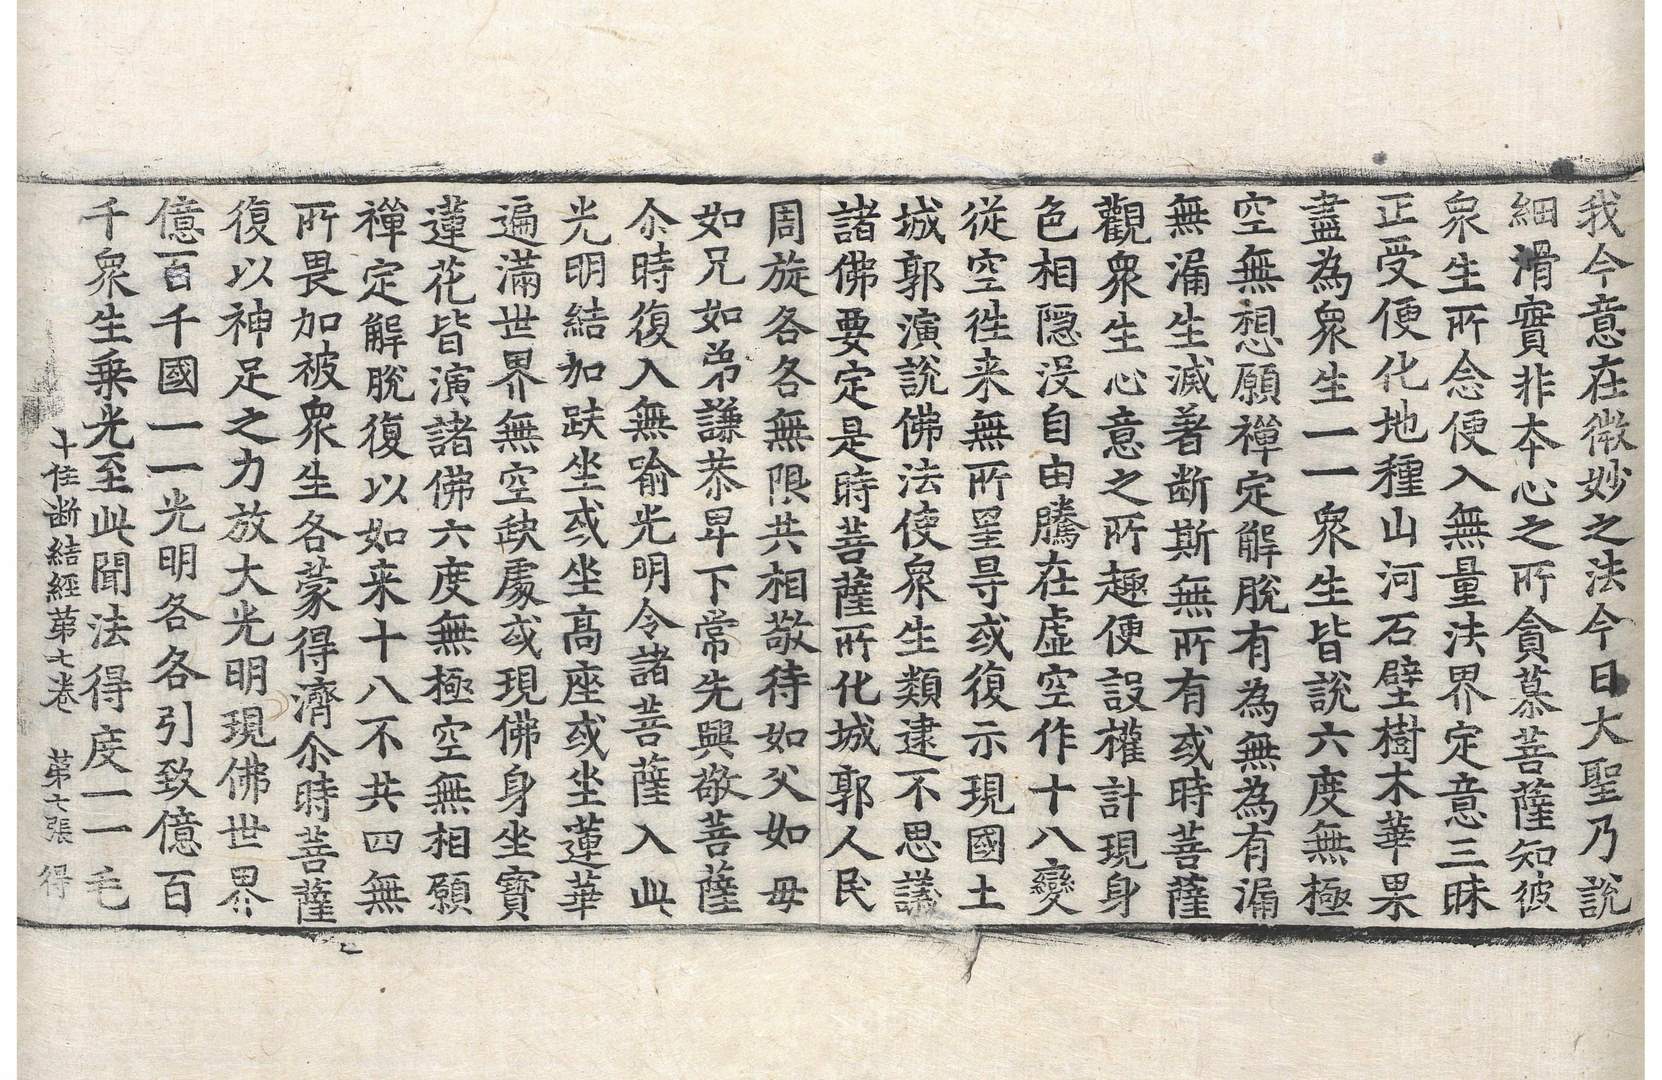 我今意在微妙之法今日大聖乃說
細滑實非本心之所貪慕菩薩知彼
衆生所念便入無量法界定意三昧
正受便化地種山河石壁樹木華果
盡為衆生一一衆生皆說六度無極
空無想願禪定解脫有為無為有漏
無漏生滅著断斯無所有或時菩薩
觀衆生心意之所趣便設權計現身
色相隱沒自由騰在虛空作十八變
從空往来無所罣㝵或復示現國土
城郭演說佛法使衆生類逮不思議
諸佛要定是時菩薩所化城郭人民
周旋各各無限共相敬待如父如母
如兄如弟謙恭卑下常先興敬菩薩
尒時復入無喻光明令諸菩薩入此
光明結加趺坐或坐高座或坐蓮華
遍滿世界無空缺處或現佛身坐寶
蓮花皆演諸佛六度無極空無相願
禪定解脫復以如来十八不共四無
所畏加被衆生各蒙得濟尒時菩薩
復以神足之力放大光明現佛世界
億百千國一一光明各各引致億百
千衆生乗光至此聞法得度一一毛
十住断結經第七卷　第六張　得